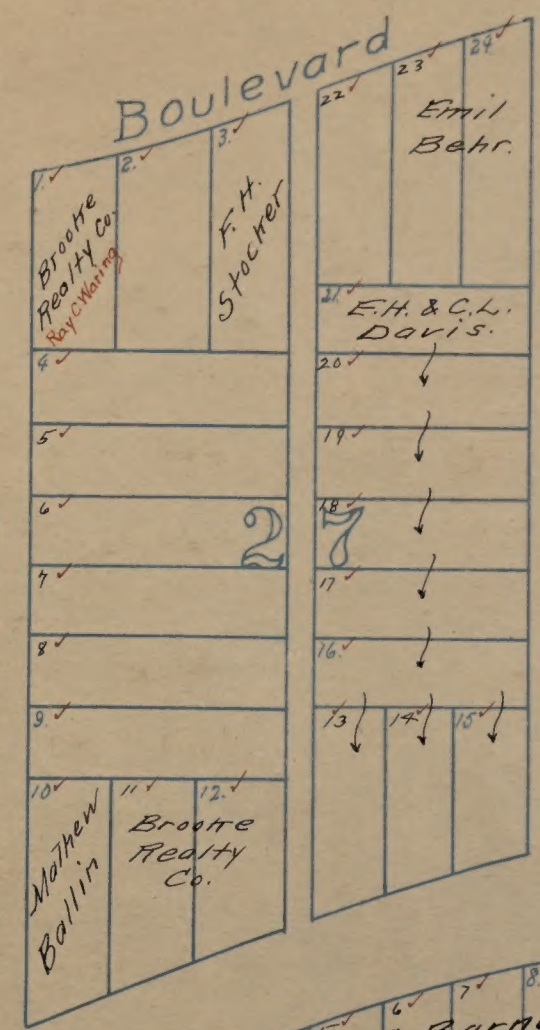 Boulevard
1.
2.
3.
Brooke
Realty Co.
Ray C Waring
F. H.
Stocker
4
5
6
7
8
9.
10
11
12.
Mathew
Ballin
Brooke
Realty
Co.
27
22
23
24
Emil
Behr.
21.
E.H. & C.L.
Davis.
20
19
18
17
16.
13
14
15
6
7
8